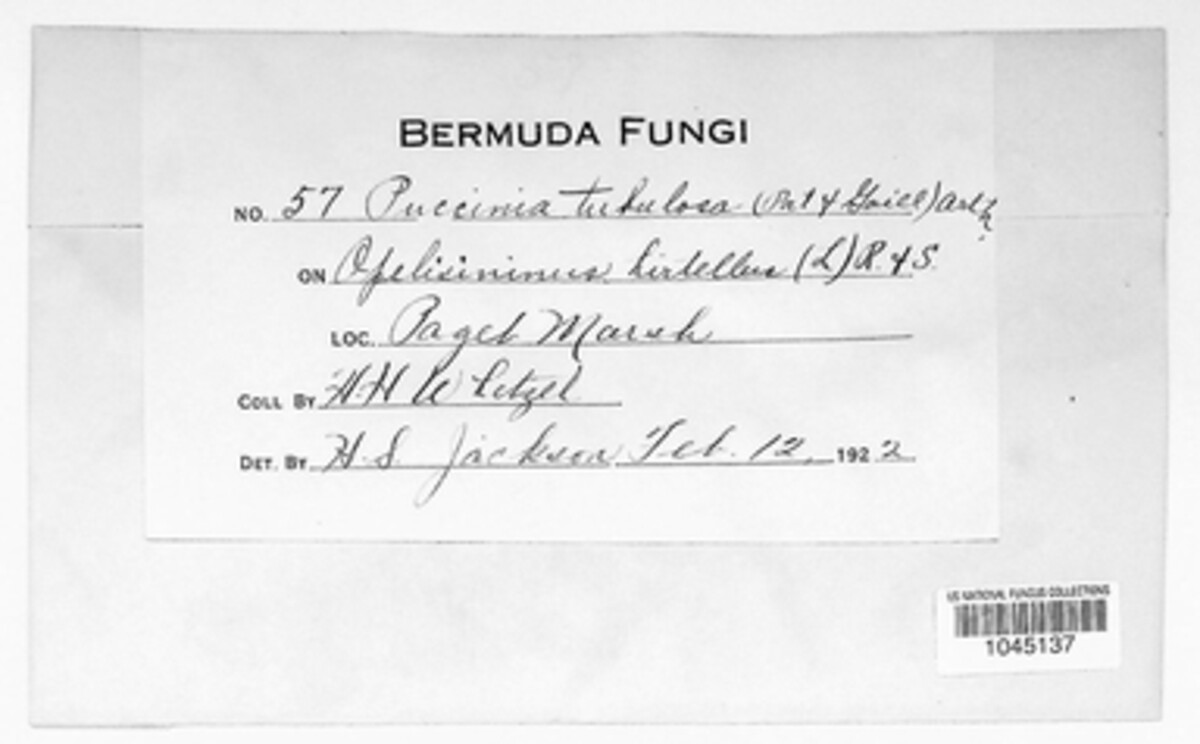 BERMUDA FUNGI
NO. 57 Puccinia tubulosa (Pat & Gaill) Arth.
ON Oplisininus hirtellus (L) R. & S.
LOC. Paget Marsh
COLL BY H H Whetzel
DET. BY H. S. Jackson Feb. 12, 1922
US NATIONAL FUNGUS COLLECTIONS
1045137